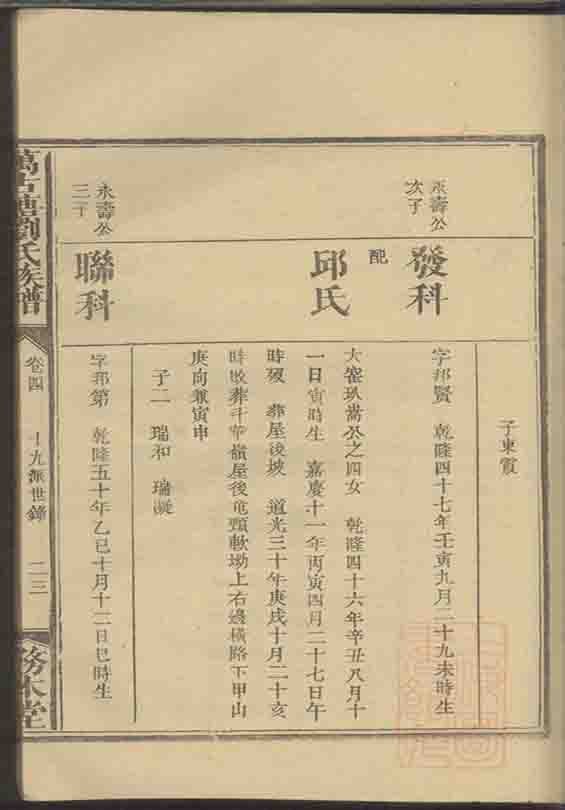 子東霞
永壽公
次子
發科
字邦賢 乾隆四十七年壬寅九月二十九未時生
配
邱氏
大窰玖嵩公之四女 乾隆四十六年辛丑八月十
一日寅時生 嘉慶十一年丙寅四月二十七日午
時歿 葬屋後坡 道光三十年庚戌十月二十亥
時改葬斗笠嶺屋後 頸軟坳上右邊橫路下甲山
庚向兼寅申
子二 瑞和 瑞凝
永壽公
三子
聯科
字邦第 乾隆五十年乙巳十月十二日巳時生
萬古塘劉氏族譜
卷四
十九派世錄
二三
務本堂